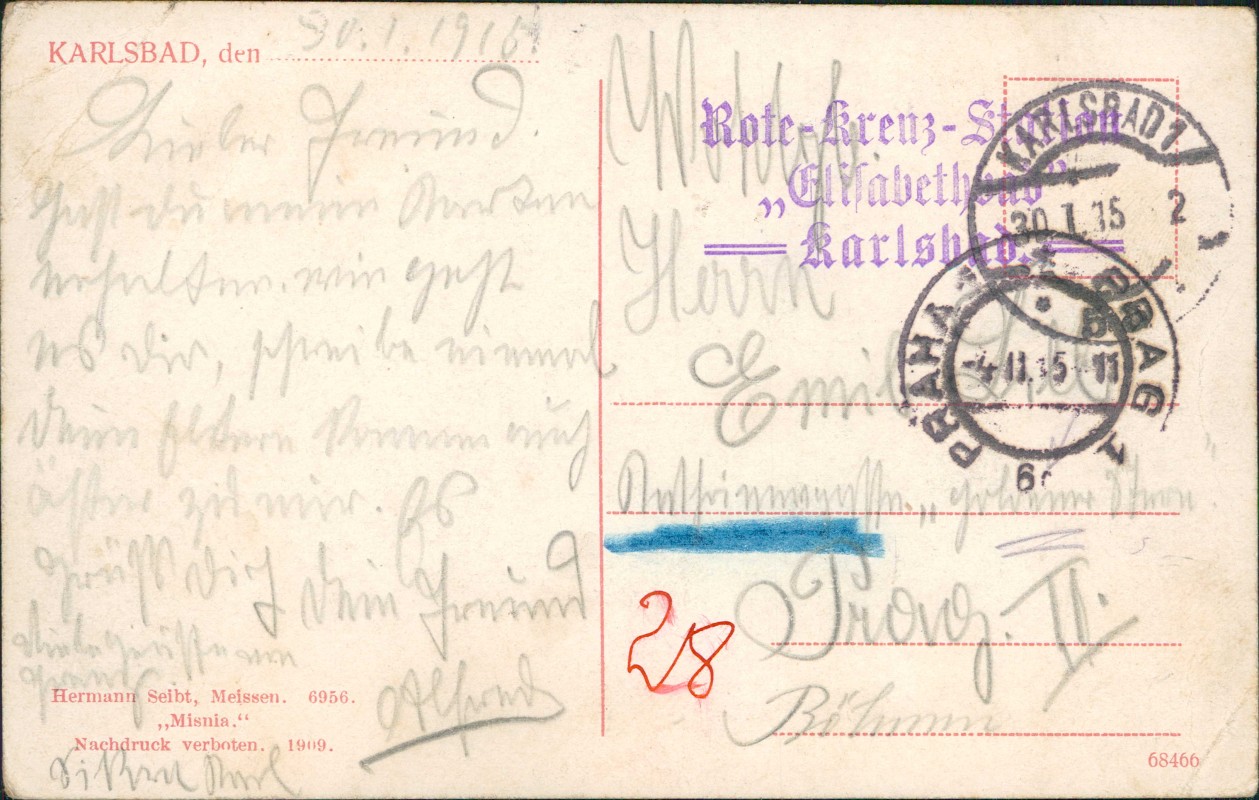 KARLSBAD, den 30.1.1915.
Lieber Freund.
Hast du meine Karten
erhalten. wie geht
es dir, schreibe einmal
deine Eltern kommen auch
öfter zu mir. Es
grüßt Dich dein Freund
Alfred
Viele Grüße von
Hermann Seibt, Meissen. 6956.
„Misnia.“
Nachdruck verboten. 1909.
Karl
Rote-Kreuz-Station
„Elisabethbad“
Karlsbad.
KARLSBAD 1
30.I.15 2
PRAHA PRAG 1
-4.II.15-11
Herrn
Emil
„goldener Stern“
Prag. II.
Böhmen
28
68466